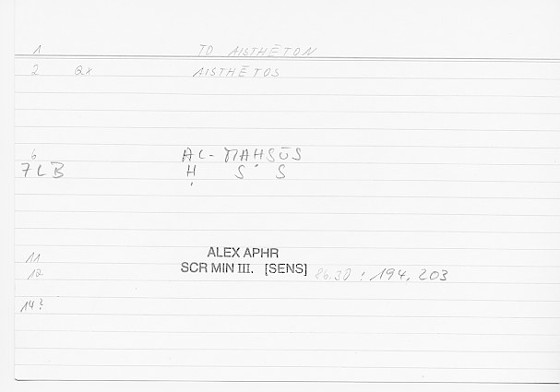 1 TO AISTHĒTON
2 AISTHĒTOS
6
7LB AL-MAḤSŪS
Ḥ S S
ALEX APHR
11
12 SCR MIN III. [SENS] 86.30 : 194, 203
14?